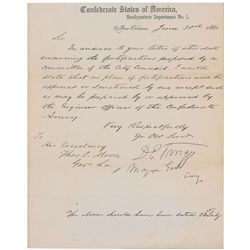 Confederate States of America,
Headquarters Department No. 1.
New Orleans June 30th 1861
Sir
In answer to your letter of this date
concerning the fortifications proposed by a
committee of the City Council, I would
state that no plan of fortifications will be
approved or sanctioned by me except such
as may be prepared by or approved by
the Engineer officer of the Confederate
Army.
Very Respectfully
Yr Obt Servt
To
His Excellency
D. E. Twiggs
Thos O. Moore
Major Genl
Gov La
The above should have been dated July